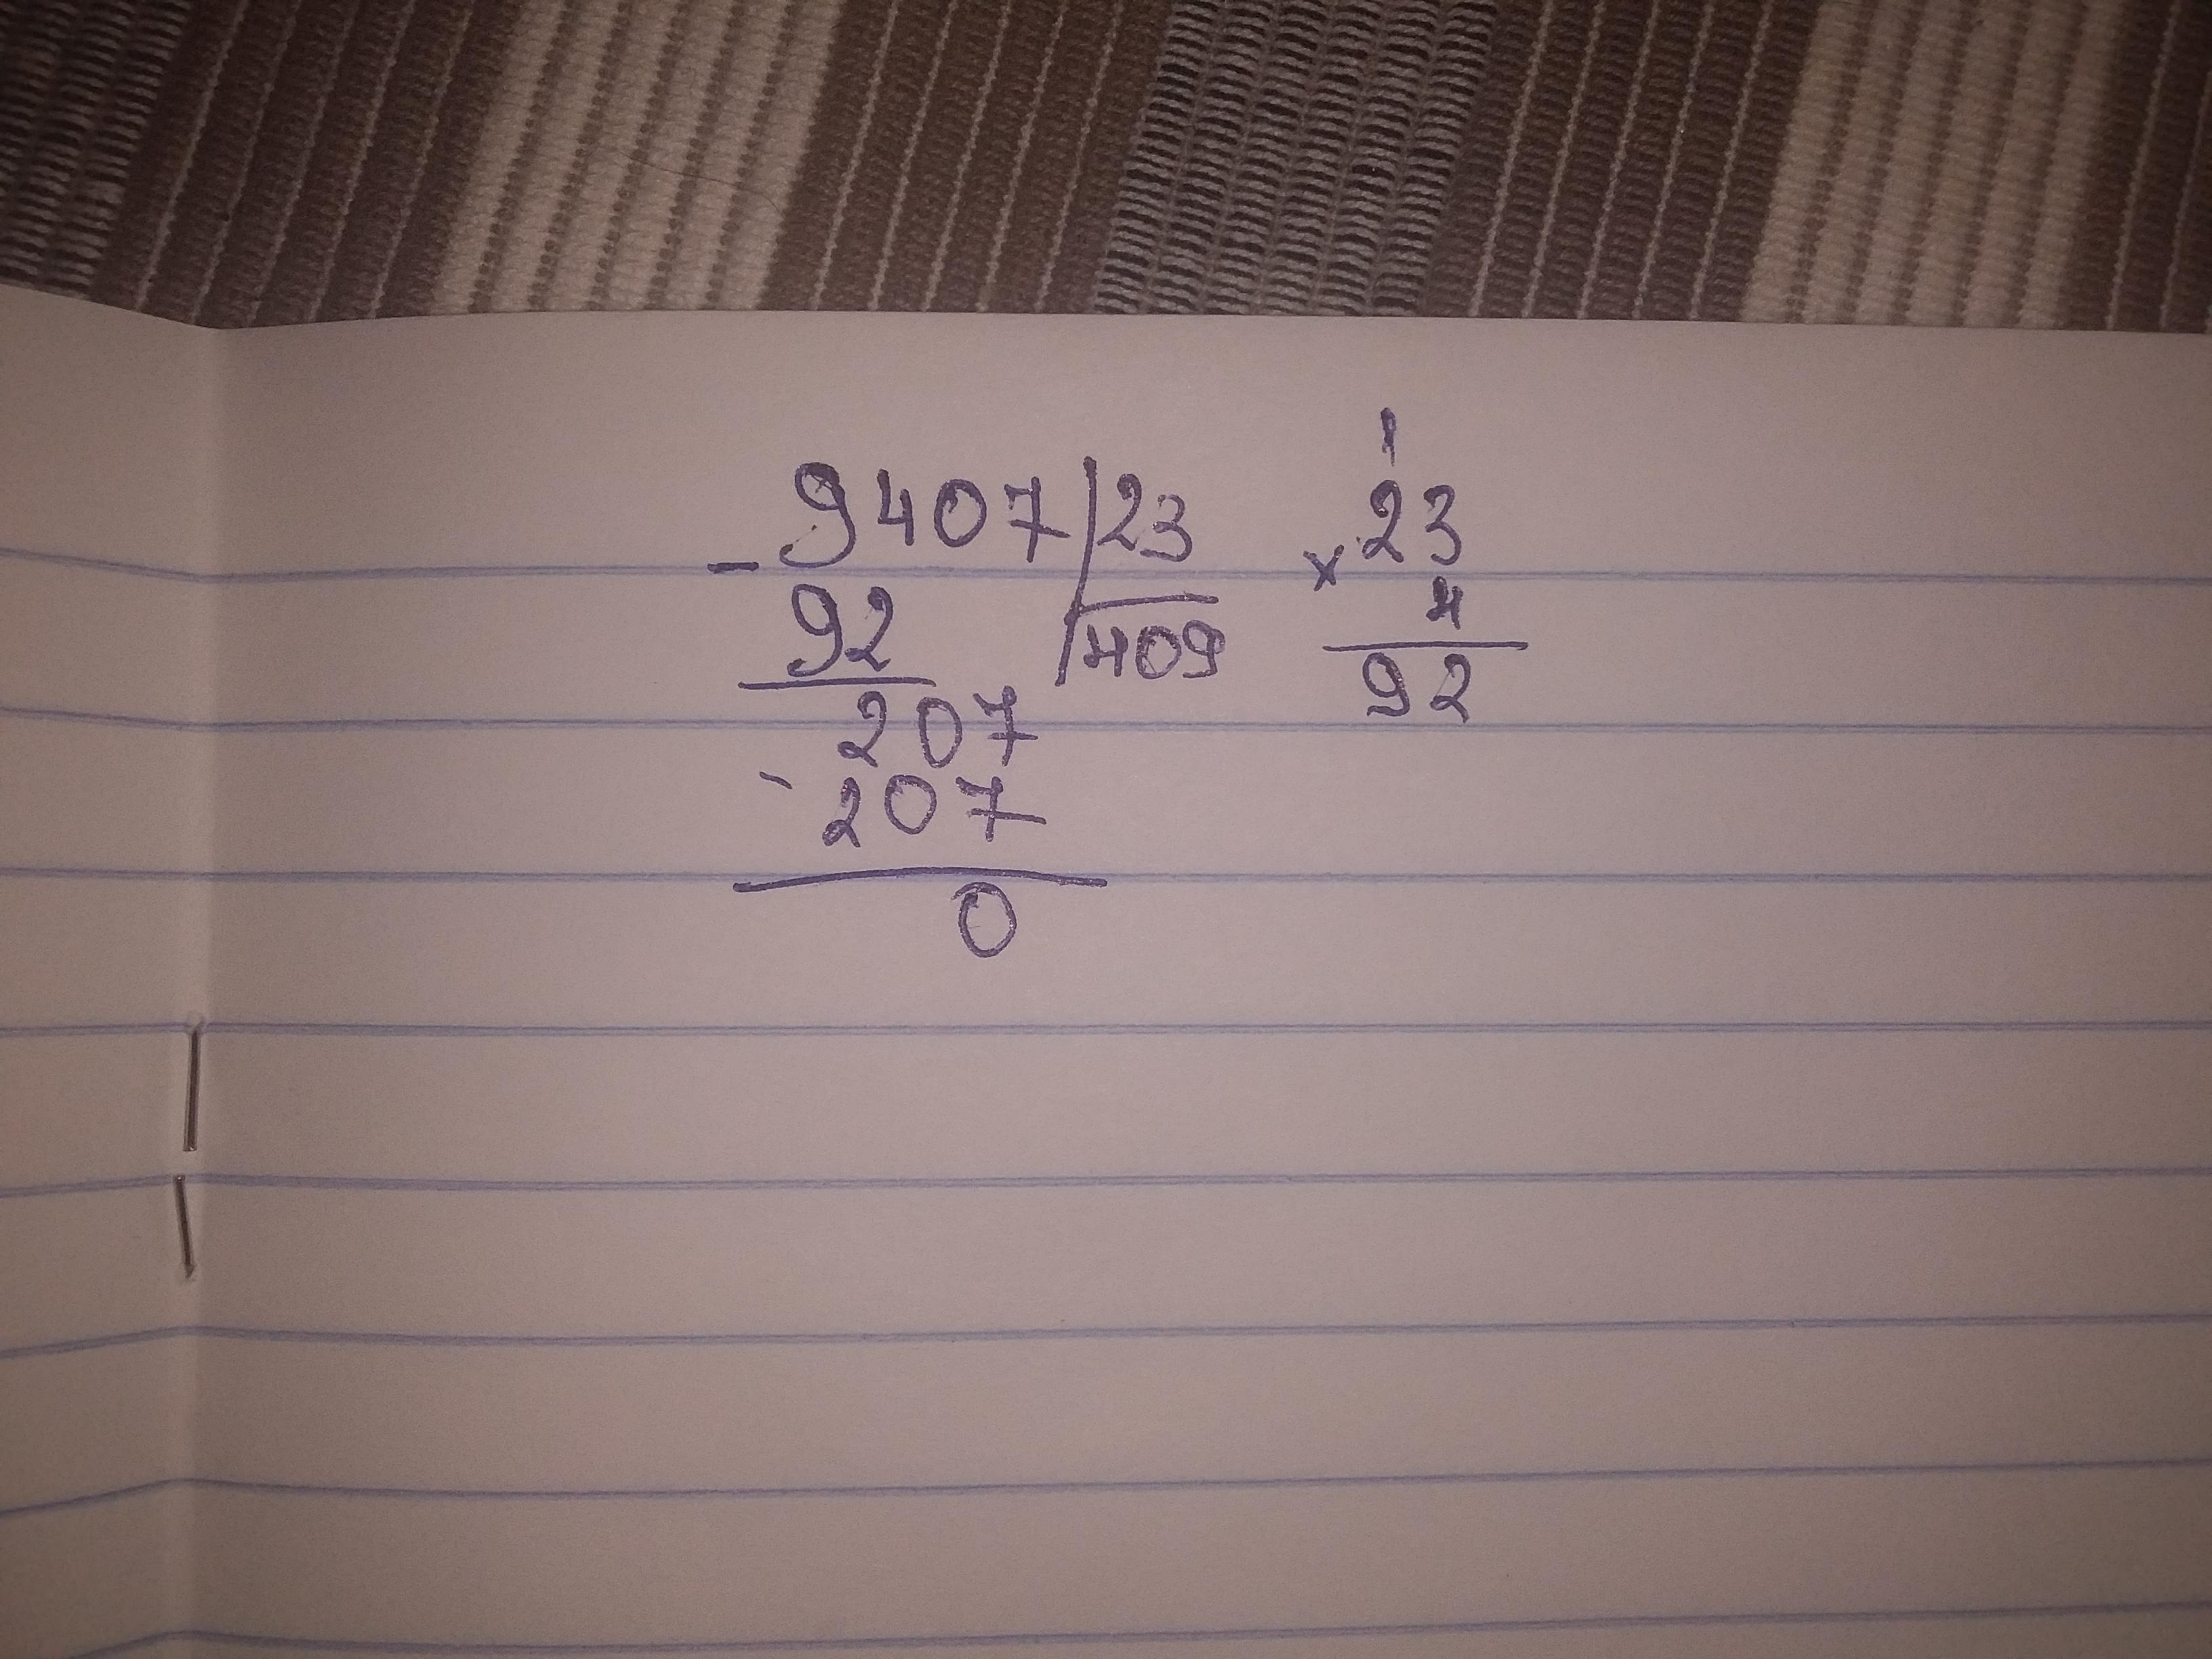 1
9407 | 23    23
-            x
92    409    4
207    92
-
207
0